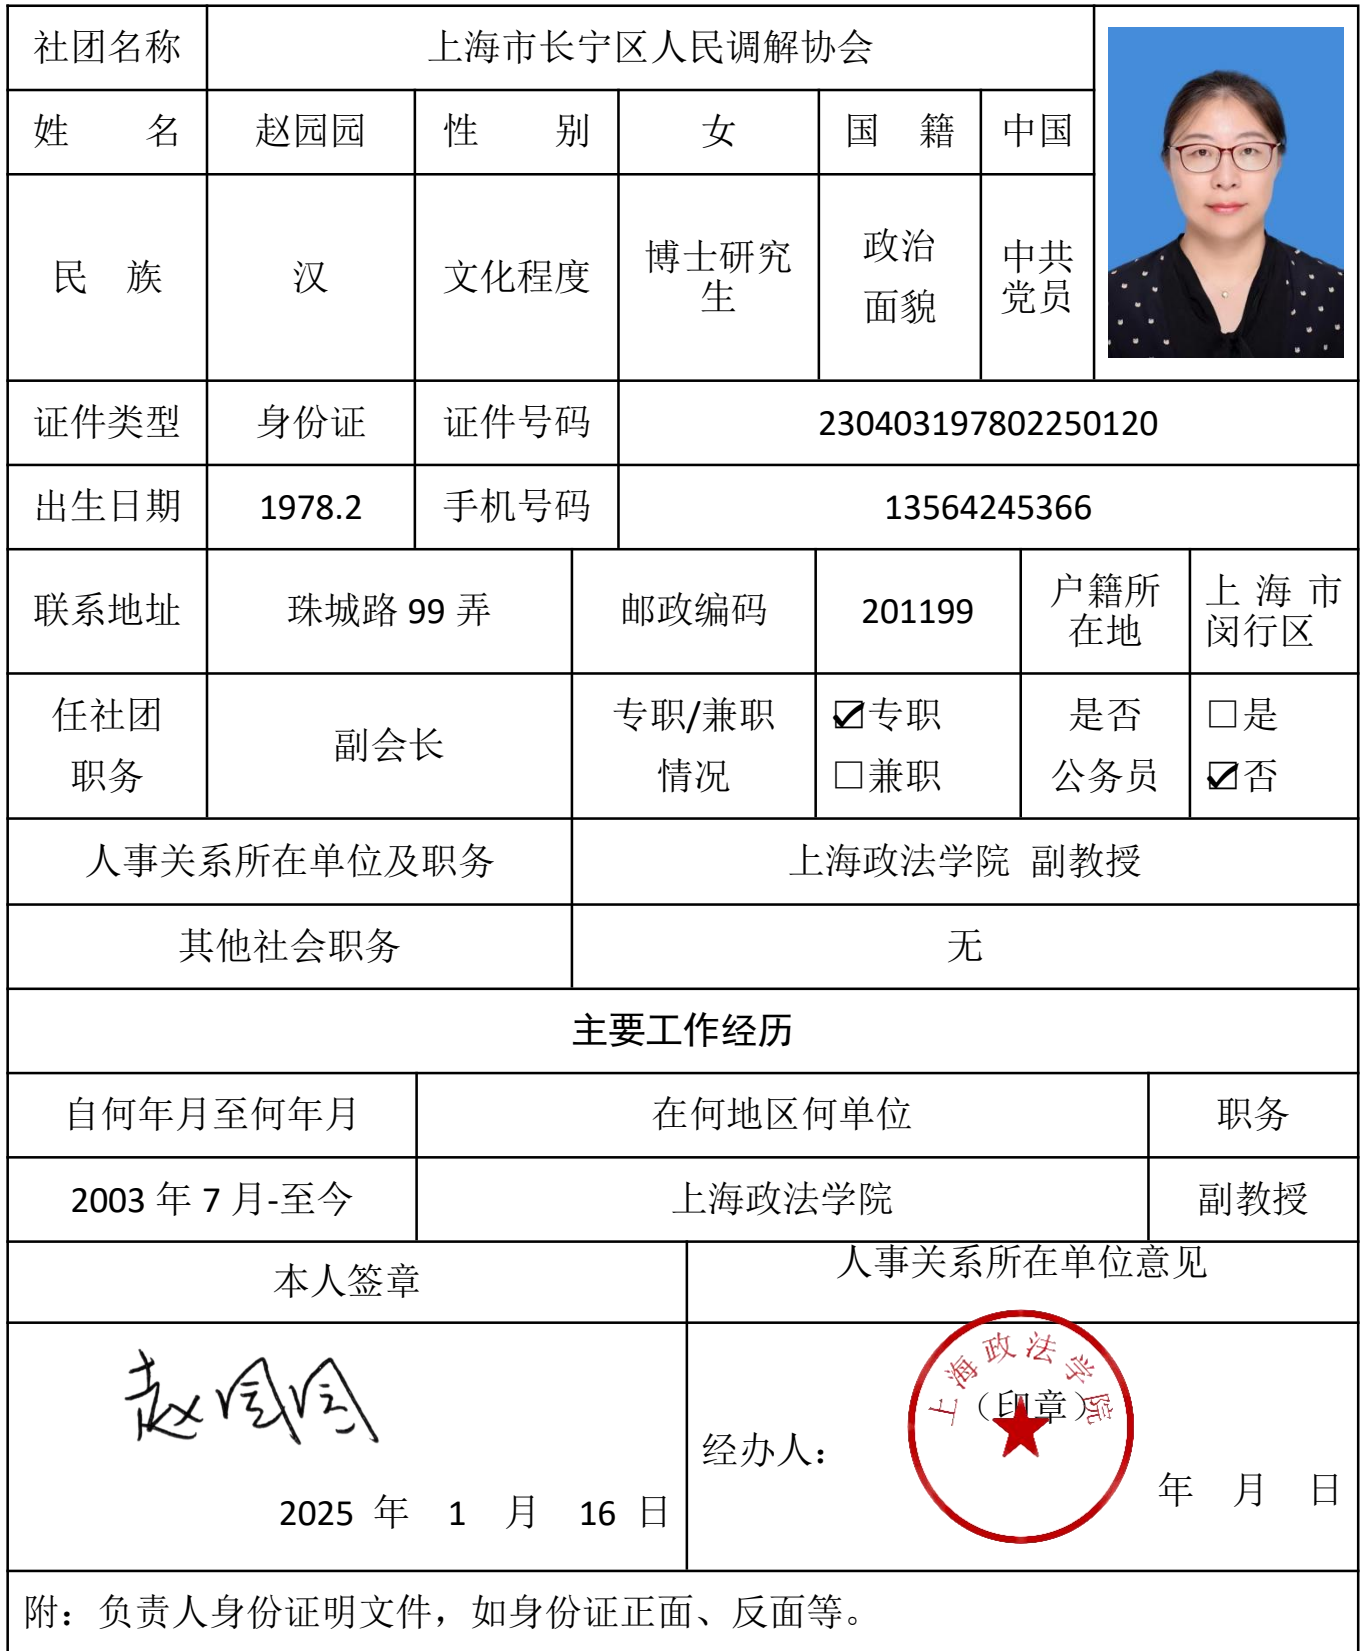 社团名称 上海市长宁区人民调解协会
姓 名 赵园园 性 别 女 国 籍 中国
民 族 汉 文化程度 博士研究生 政治面貌 中共党员
证件类型 身份证 证件号码 230403197802250120
出生日期 1978.2 手机号码 13564245366
联系地址 珠城路 99 弄 邮政编码 201199 户籍所在地 上海市闵行区
任社团职务 副会长 专职/兼职情况 ☑专职 □兼职 是否公务员 □是 ☑否
人事关系所在单位及职务 上海政法学院 副教授
其他社会职务 无
主要工作经历
自何年月至何年月 在何地区何单位 职务
2003 年 7 月-至今 上海政法学院 副教授
本人签章 人事关系所在单位意见
赵园园
上海政法学院
（印章）
经办人：
2025 年 1 月 16 日
年 月 日
附：负责人身份证明文件，如身份证正面、反面等。